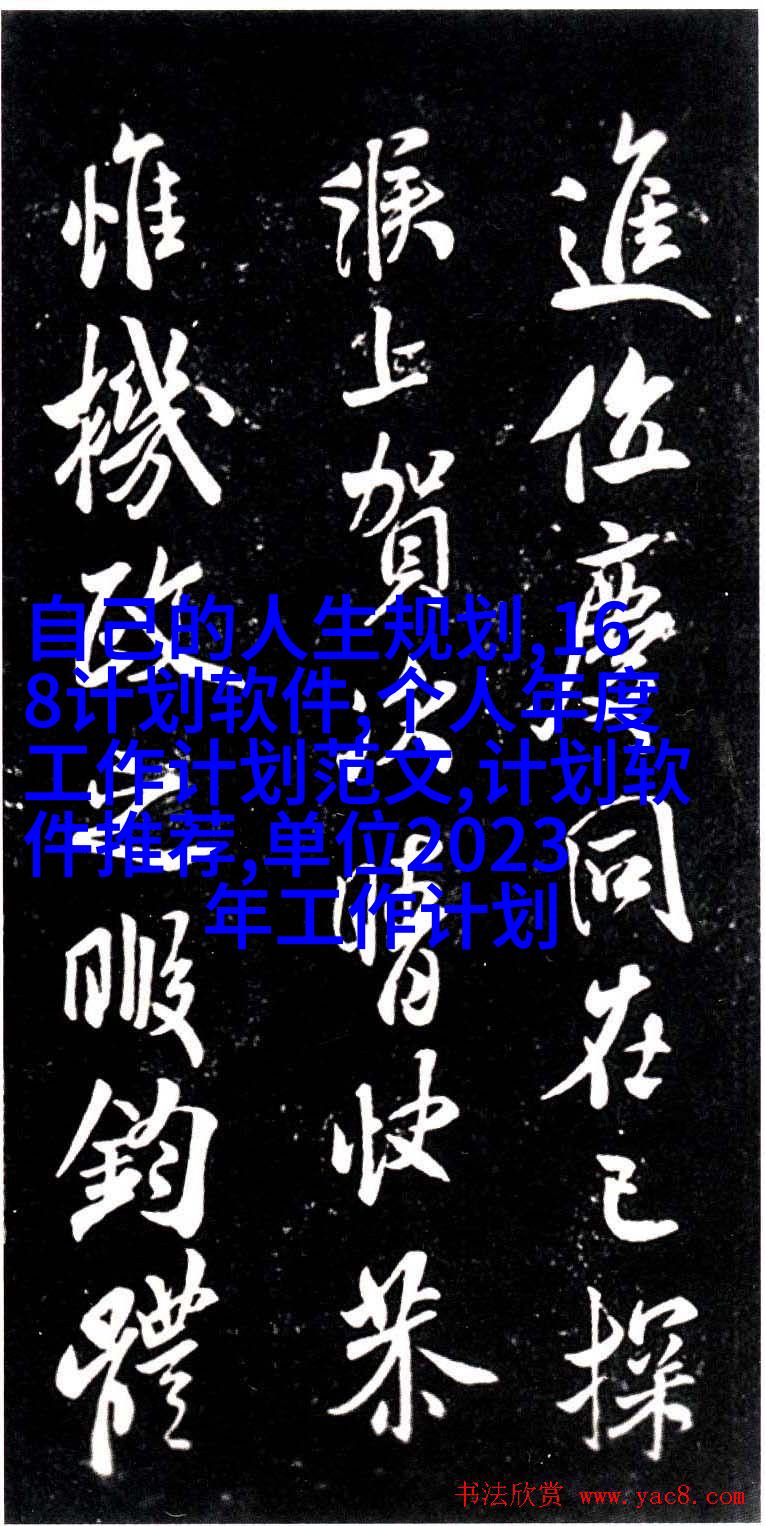 進位慶同在已探
猴上賀次晴快恭
惟機政之暇鈞體
自己的人生规划,16
8计划软件,个人年度
工作计划范文,计划软
件推荐,单位2023
年工作计划
书法欣赏 www.yac8.com